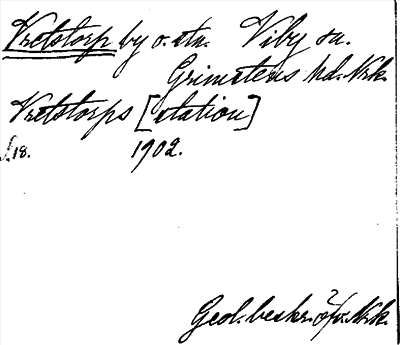 Vretstorp by o. stn. Viby sn.
Grimstens hd. Nrk.
Vretstorps [station]
s. 18. 1902.
Geol. beskr. öfv. Nrk.